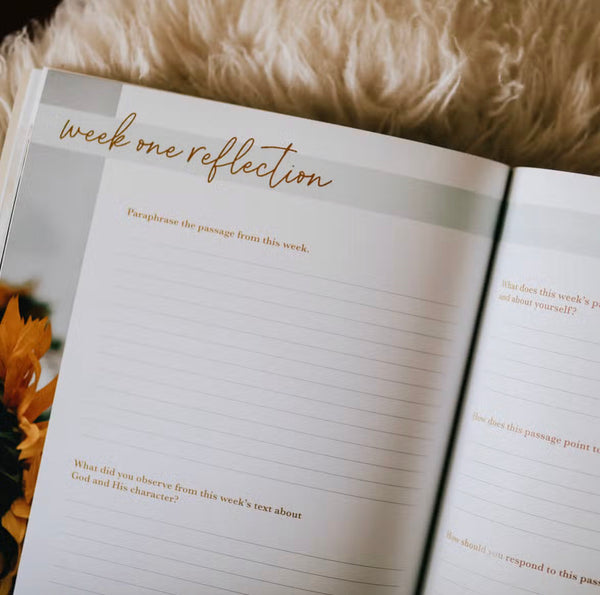 week one reflection
Paraphrase the passage from this week.
What did you observe from this week's text about
God and His character?
What does this week's
and about yourself?
How does this passage point
How should you respond to this